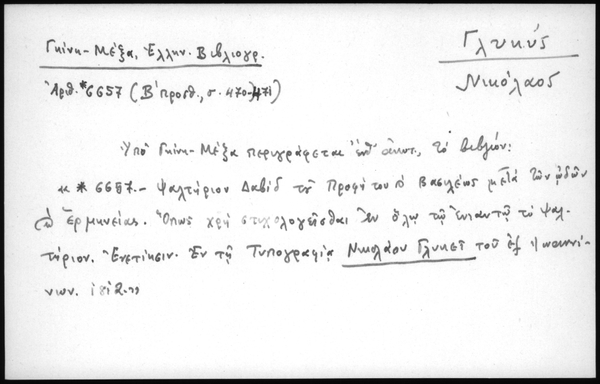 Γκίνη - Μέξα, Ἑλλην. Βιβλιογρ.
Γλυκύς
Νικόλαος
Ἀρθ. *6657 (Β' προσθ., σ. 470-471)
Ὑπὸ Γκίνη - Μέξα περιγράφεται τὸ βιβλίον:
« * 6657.- Ψαλτήριον Δαβὶδ τοῦ Προφήτου καὶ Βασιλέως μετὰ τῶν ᾠδῶν
Ἑρμηνείας. Ὅπως χρὴ στιχολογεῖσθαι ἐν ὅλῳ τῷ ἐνιαυτῷ τὸ ψαλ-
τήριον. Ἐνετίησιν. Ἐν τῇ Τυπογραφίᾳ Νικολάου Γλυκεῖ τοῦ ἐξ Ἰωαννί-
νων. 1812.»